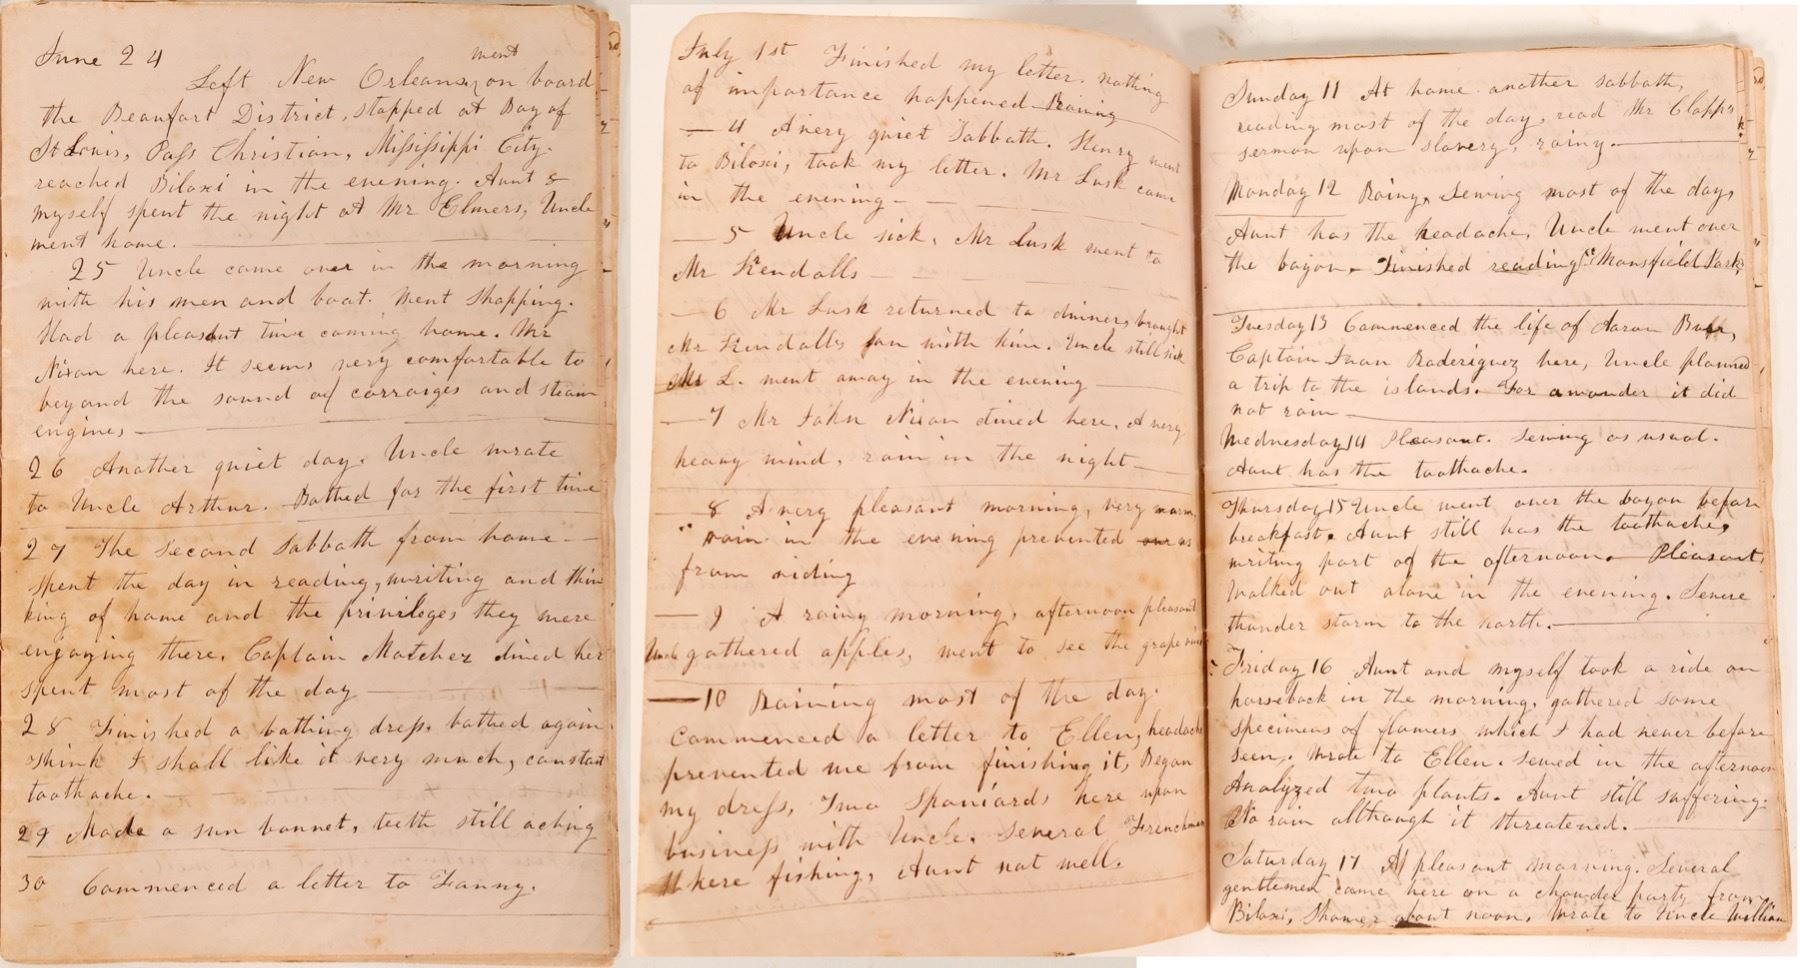 June 24
went
Left New Orleans, on board
the Beaufort District, stopped at Bay of
St Louis, Pass Christian, Mississippi City.
reached Biloxi in the evening. Aunt &
myself spent the night at Mr Elmers, Uncle
went home.
25 Uncle came over in the morning
with his men and boat. Went shopping.
Had a pleasant time coming home. Mr
Nixon here. It seems very comfortable to
beyond the sound of carraiges and steam
engines
26 Another quiet day. Uncle wrote
to Uncle Arthur. Bathed for the first time
27 The second Sabbath from home
spent the day in reading, writing and thin
king of home and the privileges they were
engoying there. Captain Matchez dined her
spent most of the day
28 Finished a bathing dress. bathed again
think I shall like it very much, constant
toothache.
29 Made a sun bonnet, teeth still aching
30 Commenced a letter to Fanny.
July 1st Finished my letter. nothing
of importance happened Raining
4 A very quiet Sabbath. Henry went
to Biloxi, took my letter. Mr Lusk came
in the evening
5 Uncle sick, Mr Lusk went to
Mr Kendalls
6 Mr Lusk returned to dinner, brought
Mr Kendalls son with him. Uncle still sick
Mr L. went away in the evening
7 Mr John Nixon dined here. A very
heavy wind, rain in the night
8 A very pleasant morning, very warm,
rain in the evening prevented our us
from riding
9 A rainy morning, afternoon pleasant
Uncle gathered apples, went to see the grape vines
10 Raining most of the day.
Commenced a letter to Ellen, headache
prevented me from finishing it, Began
my dress, Two Spaniards here upon
business with Uncle. Several Frenchmen
here fishing, Aunt not well.
Sunday 11 At home. another sabbath,
reading most of the day, read Mr Clapp's
sermon upon slavery, rainy.
Monday 12 Rainy, Sewing most of the day,
Aunt has the headache, Uncle went over
the bayou. Finished reading "Mansfield Park,
Tuesday 13 Commenced the life of Aaron Burr,
Captain Juan Raderiguez here, Uncle planned
a trip to the islands. For a wonder it did
not rain
Wednesday 14 Pleasant. Sewing as usual.
Aunt has the toothache.
Thursday 15 Uncle went over the bayou before
breakfast. Aunt still has the toothache,
writing part of the afternoon. Pleasant,
Walked out alone in the evening. Severe
thunder storm to the north.
Friday 16 Aunt and myself took a ride on
horseback in the morning, gathered some
specimens of flowers which I had never before
seen. Wrote to Ellen. Sewed in the afternoon
Analyzed two plants. Aunt still suffering.
No rain although it threatened.
Saturday 17 A pleasant morning. Several
gentlemen came here on a chowder party from
Biloxi, Shower about noon, Wrote to Uncle William